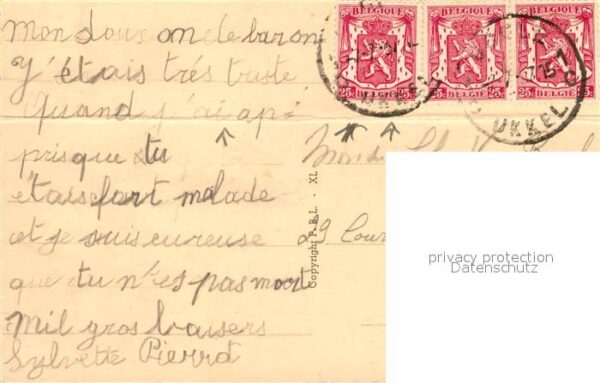 Mon doux on de baron
J'étais trés truste
Quand j'ai ap-
pris que tu
étais fort malade
et je suis eureuse
que tu n'es pas mort
Mil gros baisers
Sylvette Pierrot
BELGIQUE BELGIQUE BELGIQUE
25c. 25c. 25c.
BELGIË BELGIË BELGIË
UKKEL
UKKEL
Copyright P.B.L. - XL
29
privacy protection
Datenschutz